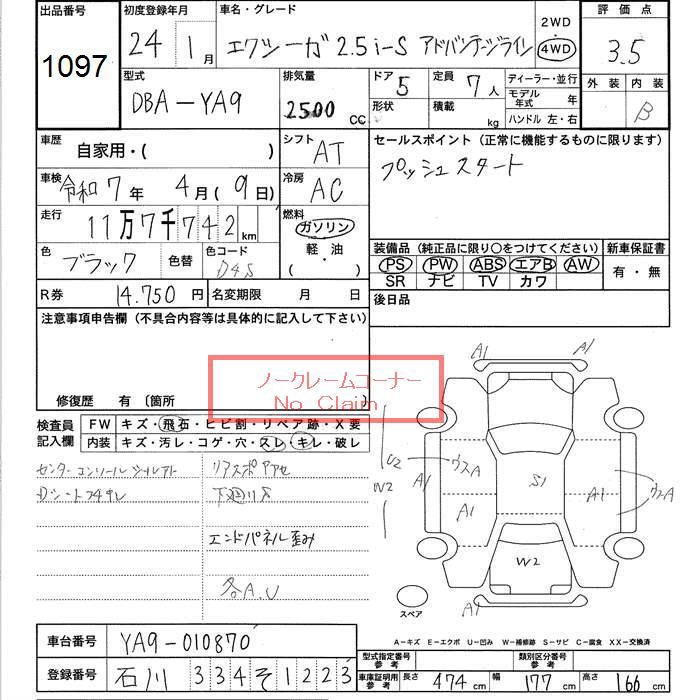 出品番号 初度登録年月 車名・グレード 2WD 評価点
1097 24 1月 エクシーガ 2.5i-S アドバンテージライン 4WD 3.5
型式 排気量 ドア 定員 ディーラー・並行 外装 内装
DBA-YA9 2500cc 5 7人 モデル年式 年 B
形状 積載 kg ハンドル 左・右
車歴 シフト セールスポイント (正常に機能するものに限ります)
自家用・( ) AT プッシュスタート
車検 冷房
令和7年 4月(9日) AC
走行 燃料
11万7千742km ガソリン
色 色替 色コード 軽・油 装備品 (純正品に限り○をつけてください) 新車保証書
ブラック D4S (・) PS PW ABS エアB AW 有・無
SR ナビ TV カワ
R券 14.750円 名変期限 月 日 後日品
注意事項申告欄 (不具合内容等は具体的に記入して下さい)
ノークレームコーナー
No Claim
修復歴 有 〔箇所
検査員記入欄 FW キズ・飛石・ヒビ割・リペア跡・X要
内装 キズ・汚レ・コゲ・穴・スレ・キレ・破レ
センターコンソール
リアスポ
エンドパネル歪み
各A.U
A1 A1
U2 ウスA S1 A1 ウスA
W2 A1 A1
W2
A1
スペア
A-キズ E-エクボ U-凹み W-補修跡 S-サビ C-腐食 XX-交換済
車台番号 YA9-010870 型式指定番号 参考 類別区分番号 参考
登録番号 石川 334 そ 1223 車庫証明用 参考 長さ 474cm 幅 177cm 高さ 166cm